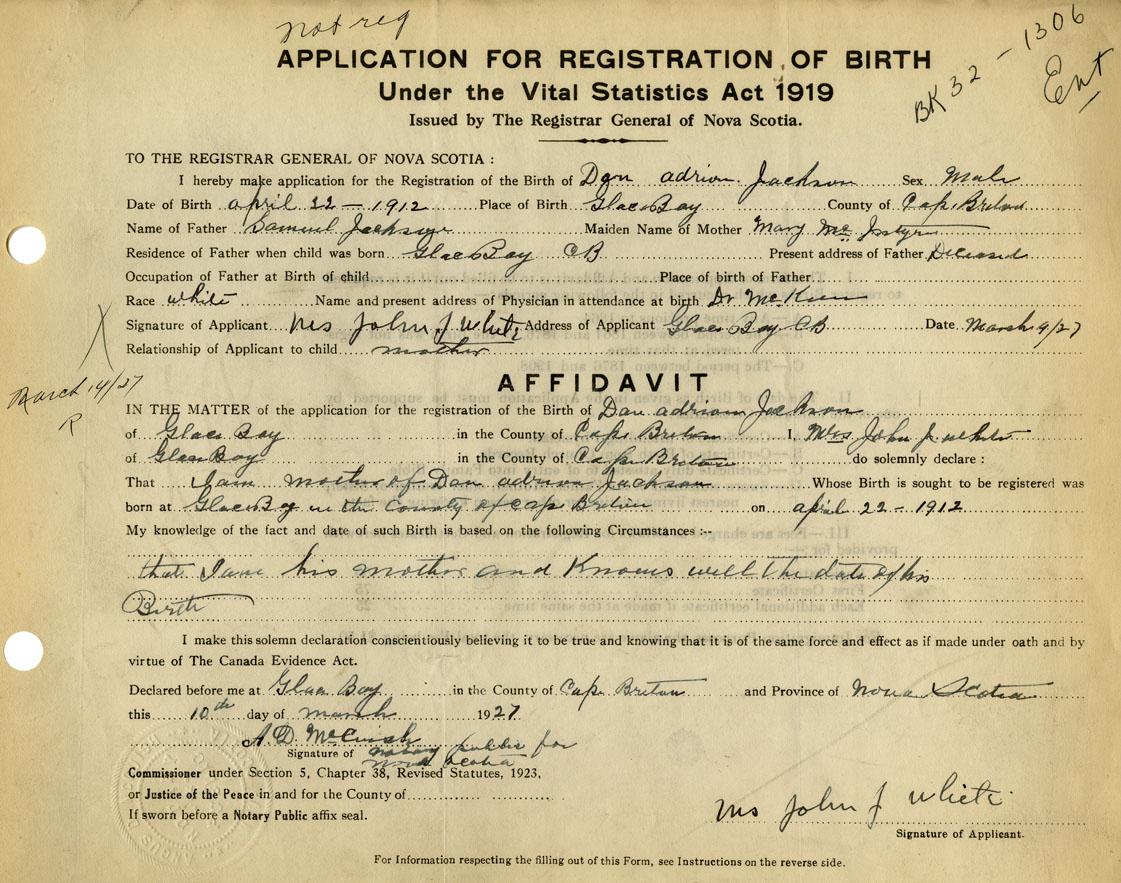 not reg
BK 32 - 1306
Ent
APPLICATION FOR REGISTRATION OF BIRTH
Under the Vital Statistics Act 1919
Issued by The Registrar General of Nova Scotia.
TO THE REGISTRAR GENERAL OF NOVA SCOTIA :
I hereby make application for the Registration of the Birth of Dan adrion Jackson Sex Male
Date of Birth april 22 - 1912 Place of Birth Glace Bay County of Cape Breton
Name of Father Samuel Jackson Maiden Name of Mother Mary Mc
Residence of Father when child was born Glace Bay CB Present address of Father Deceased
Occupation of Father at Birth of child Place of birth of Father
Race white Name and present address of Physician in attendance at birth Dr
Signature of Applicant Mrs John J White Address of Applicant Glace Bay CB Date March 9/27
Relationship of Applicant to child mother
March 14/27
R
AFFIDAVIT
IN THE MATTER of the application for the registration of the Birth of Dan adrion Jackson
of Glace Bay in the County of Cape Breton I, Mrs John J. White
of Glace Bay in the County of Cape Breton do solemnly declare :
That I am mother of Dan adrion Jackson Whose Birth is sought to be registered was
born at Glace Bay in the County of Cape Breton on april 22 - 1912
My knowledge of the fact and date of such Birth is based on the following Circumstances :--
that I am his mother and Knows well the date of his
Birth
I make this solemn declaration conscientiously believing it to be true and knowing that it is of the same force and effect as if made under oath and by
virtue of The Canada Evidence Act.
Declared before me at Glace Bay in the County of Cape Breton and Province of Nova Scotia
this 10th day of march 1927
A. D.
Signature of notary public for
Nova Scotia
Commissioner under Section 5, Chapter 38, Revised Statutes, 1923,
or Justice of the Peace in and for the County of
If sworn before a Notary Public affix seal.
Mrs John J White
Signature of Applicant.
For Information respecting the filling out of this Form, see Instructions on the reverse side.